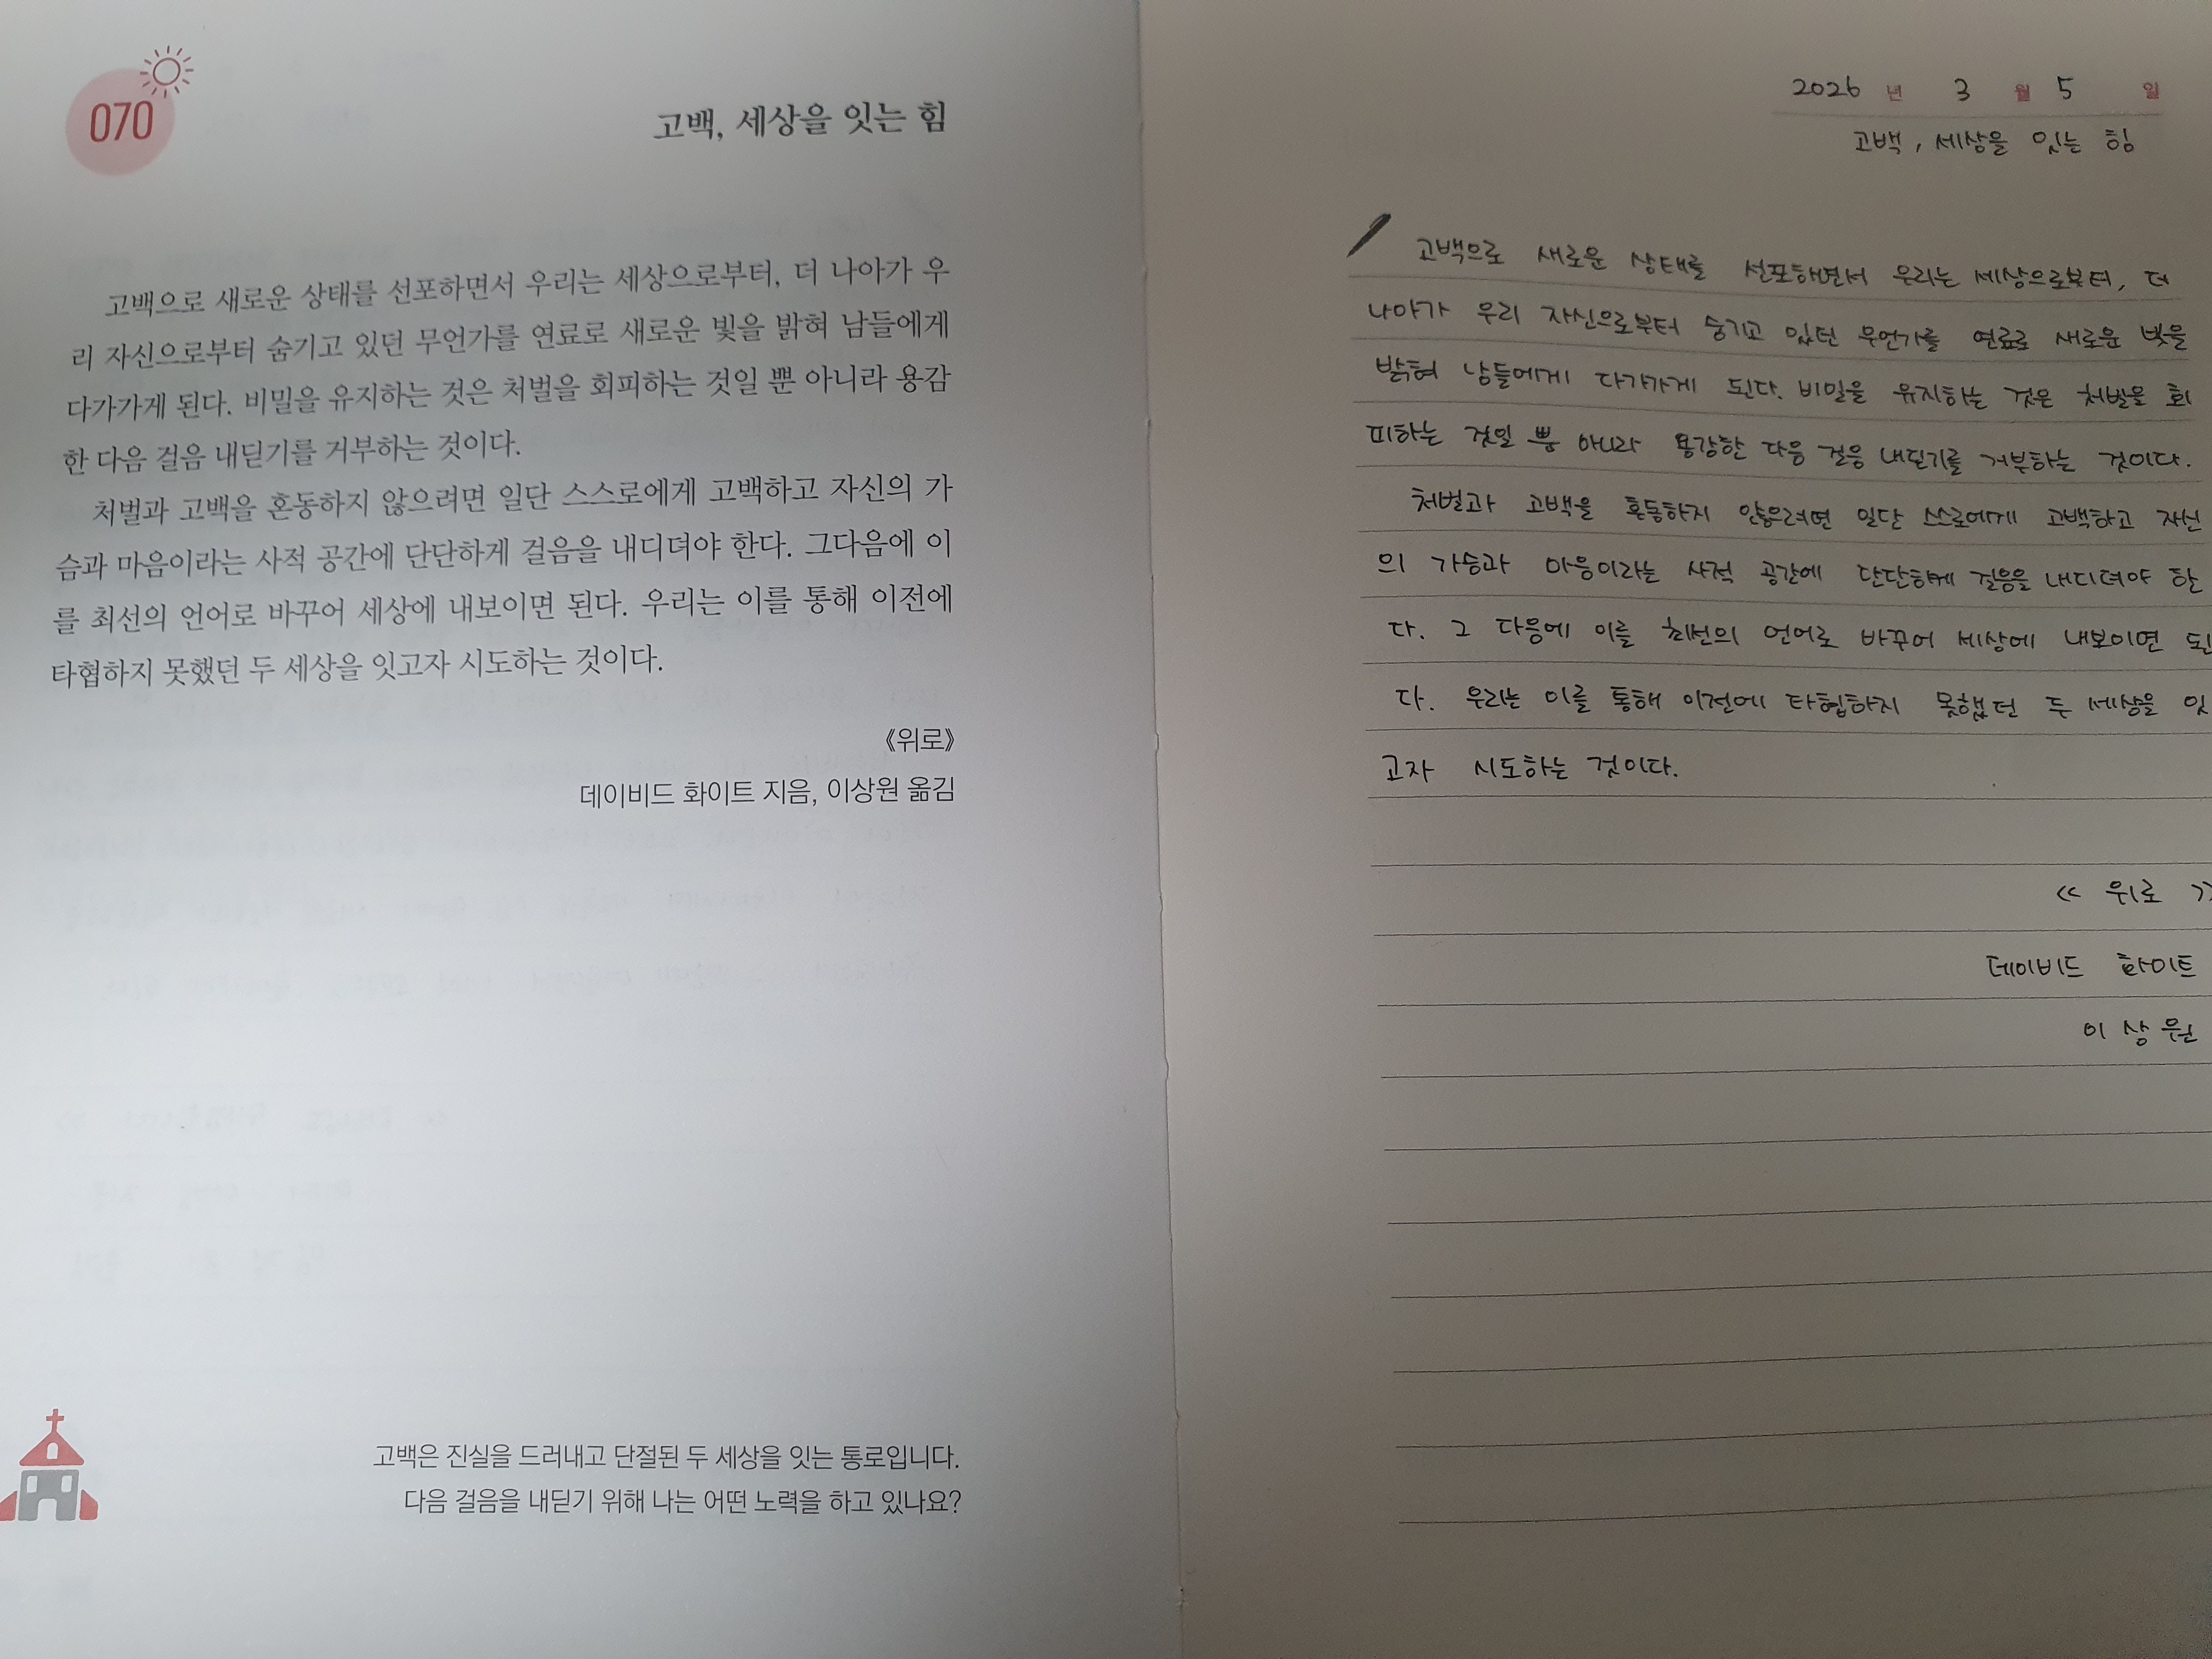 070
고백, 세상을 잇는 힘
고백으로 새로운 상태를 선포하면서 우리는 세상으로부터, 더 나아가 우
리 자신으로부터 숨기고 있던 무언가를 연료로 새로운 빛을 밝혀 남들에게
다가가게 된다. 비밀을 유지하는 것은 처벌을 회피하는 것일 뿐 아니라 용감
한 다음 걸음 내딛기를 거부하는 것이다.
처벌과 고백을 혼동하지 않으려면 일단 스스로에게 고백하고 자신의 가
슴과 마음이라는 사적 공간에 단단하게 걸음을 내디뎌야 한다. 그다음에 이
를 최선의 언어로 바꾸어 세상에 내보이면 된다. 우리는 이를 통해 이전에
타협하지 못했던 두 세상을 잇고자 시도하는 것이다.
《위로》
데이비드 화이트 지음, 이상원 옮김
고백은 진실을 드러내고 단절된 두 세상을 잇는 통로입니다.
다음 걸음을 내딛기 위해 나는 어떤 노력을 하고 있나요?
2026 년 3 월 5 일
고백, 세상을 잇는 힘
고백으로 새로운 상태를 선포하면서 우리는 세상으로부터, 더
나아가 우리 자신으로부터 숨기고 있던 무언가를 연료로 새로운 빛을
밝혀 남들에게 다가가게 된다. 비밀을 유지하는 것은 처벌을 회
피하는 것일 뿐 아니라 용감한 다음 걸음 내딛기를 거부하는 것이다.
처벌과 고백을 혼동하지 않으려면 일단 스스로에게 고백하고 자신
의 가슴과 마음이라는 사적 공간에 단단하게 걸음을 내디뎌야 한
다. 그 다음에 이를 최선의 언어로 바꾸어 세상에 내보이면 된
다. 우리는 이를 통해 이전에 타협하지 못했던 두 세상을 잇
고자 시도하는 것이다.
<< 위로 >>
데이비드 화이트
이상원